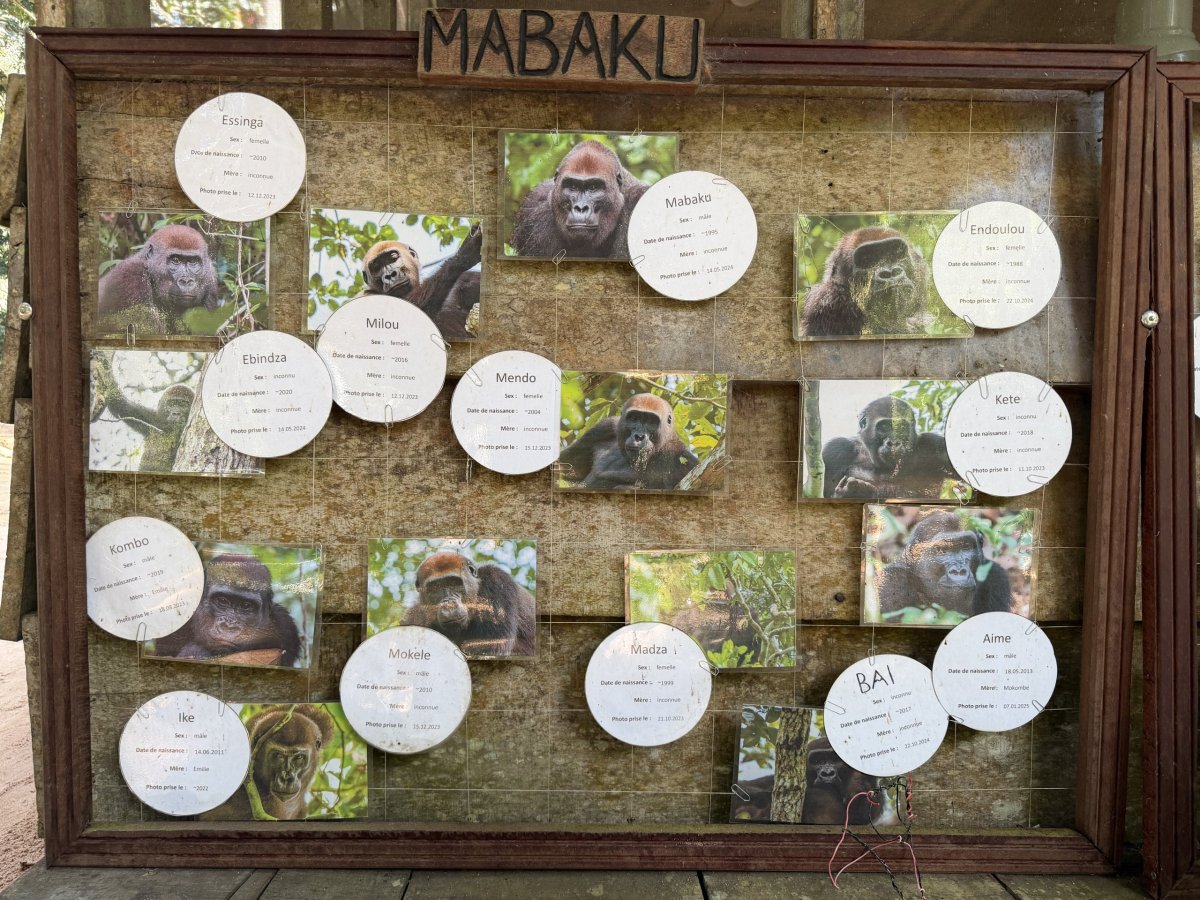 MABAKU
Essinga
Sex : femelle
Date de naissance : ~2010
Mère : inconnue
Photo prise le : 12.12.2023
Mabaku
Sex : mâle
Date de naissance : ~1995
Mère : inconnue
Photo prise le : 14.05.2024
Endoulou
Sex : femelle
Date de naissance : ~1988
Mère : inconnue
Photo prise le : 22.10.2024
Milou
Sex : femelle
Date de naissance : ~2016
Mère : inconnue
Photo prise le : 12.12.2023
Ebindza
Sex : inconnu
Date de naissance : ~2020
Mère : inconnue
Photo prise le : 14.05.2024
Mendo
Sex : femelle
Date de naissance : ~2004
Mère : inconnue
Photo prise le : 15.12.2023
Kete
Sex : inconnu
Date de naissance : ~2018
Mère : inconnue
Photo prise le : 11.10.2023
Kombo
Sex : mâle
Date de naissance : ~2019
Mère : Emilie
Photo prise le :
Mokele
Sex : mâle
Date de naissance : ~2010
Mère : inconnue
Photo prise le : 15.12.2023
Madza
Sex : femelle
Date de naissance : ~1999
Mère : inconnue
Photo prise le : 21.10.2023
BAI
Sex : inconnu
Date de naissance : ~2017
Mère : inconnue
Photo prise le : 22.10.2024
Aime
Sex : mâle
Date de naissance : 18.05.2013
Mère : Mokombe
Photo prise le : 07.01.2025
Ike
Sex : mâle
Date de naissance : 14.06.2011
Mère : Emilie
Photo prise le : ~2022